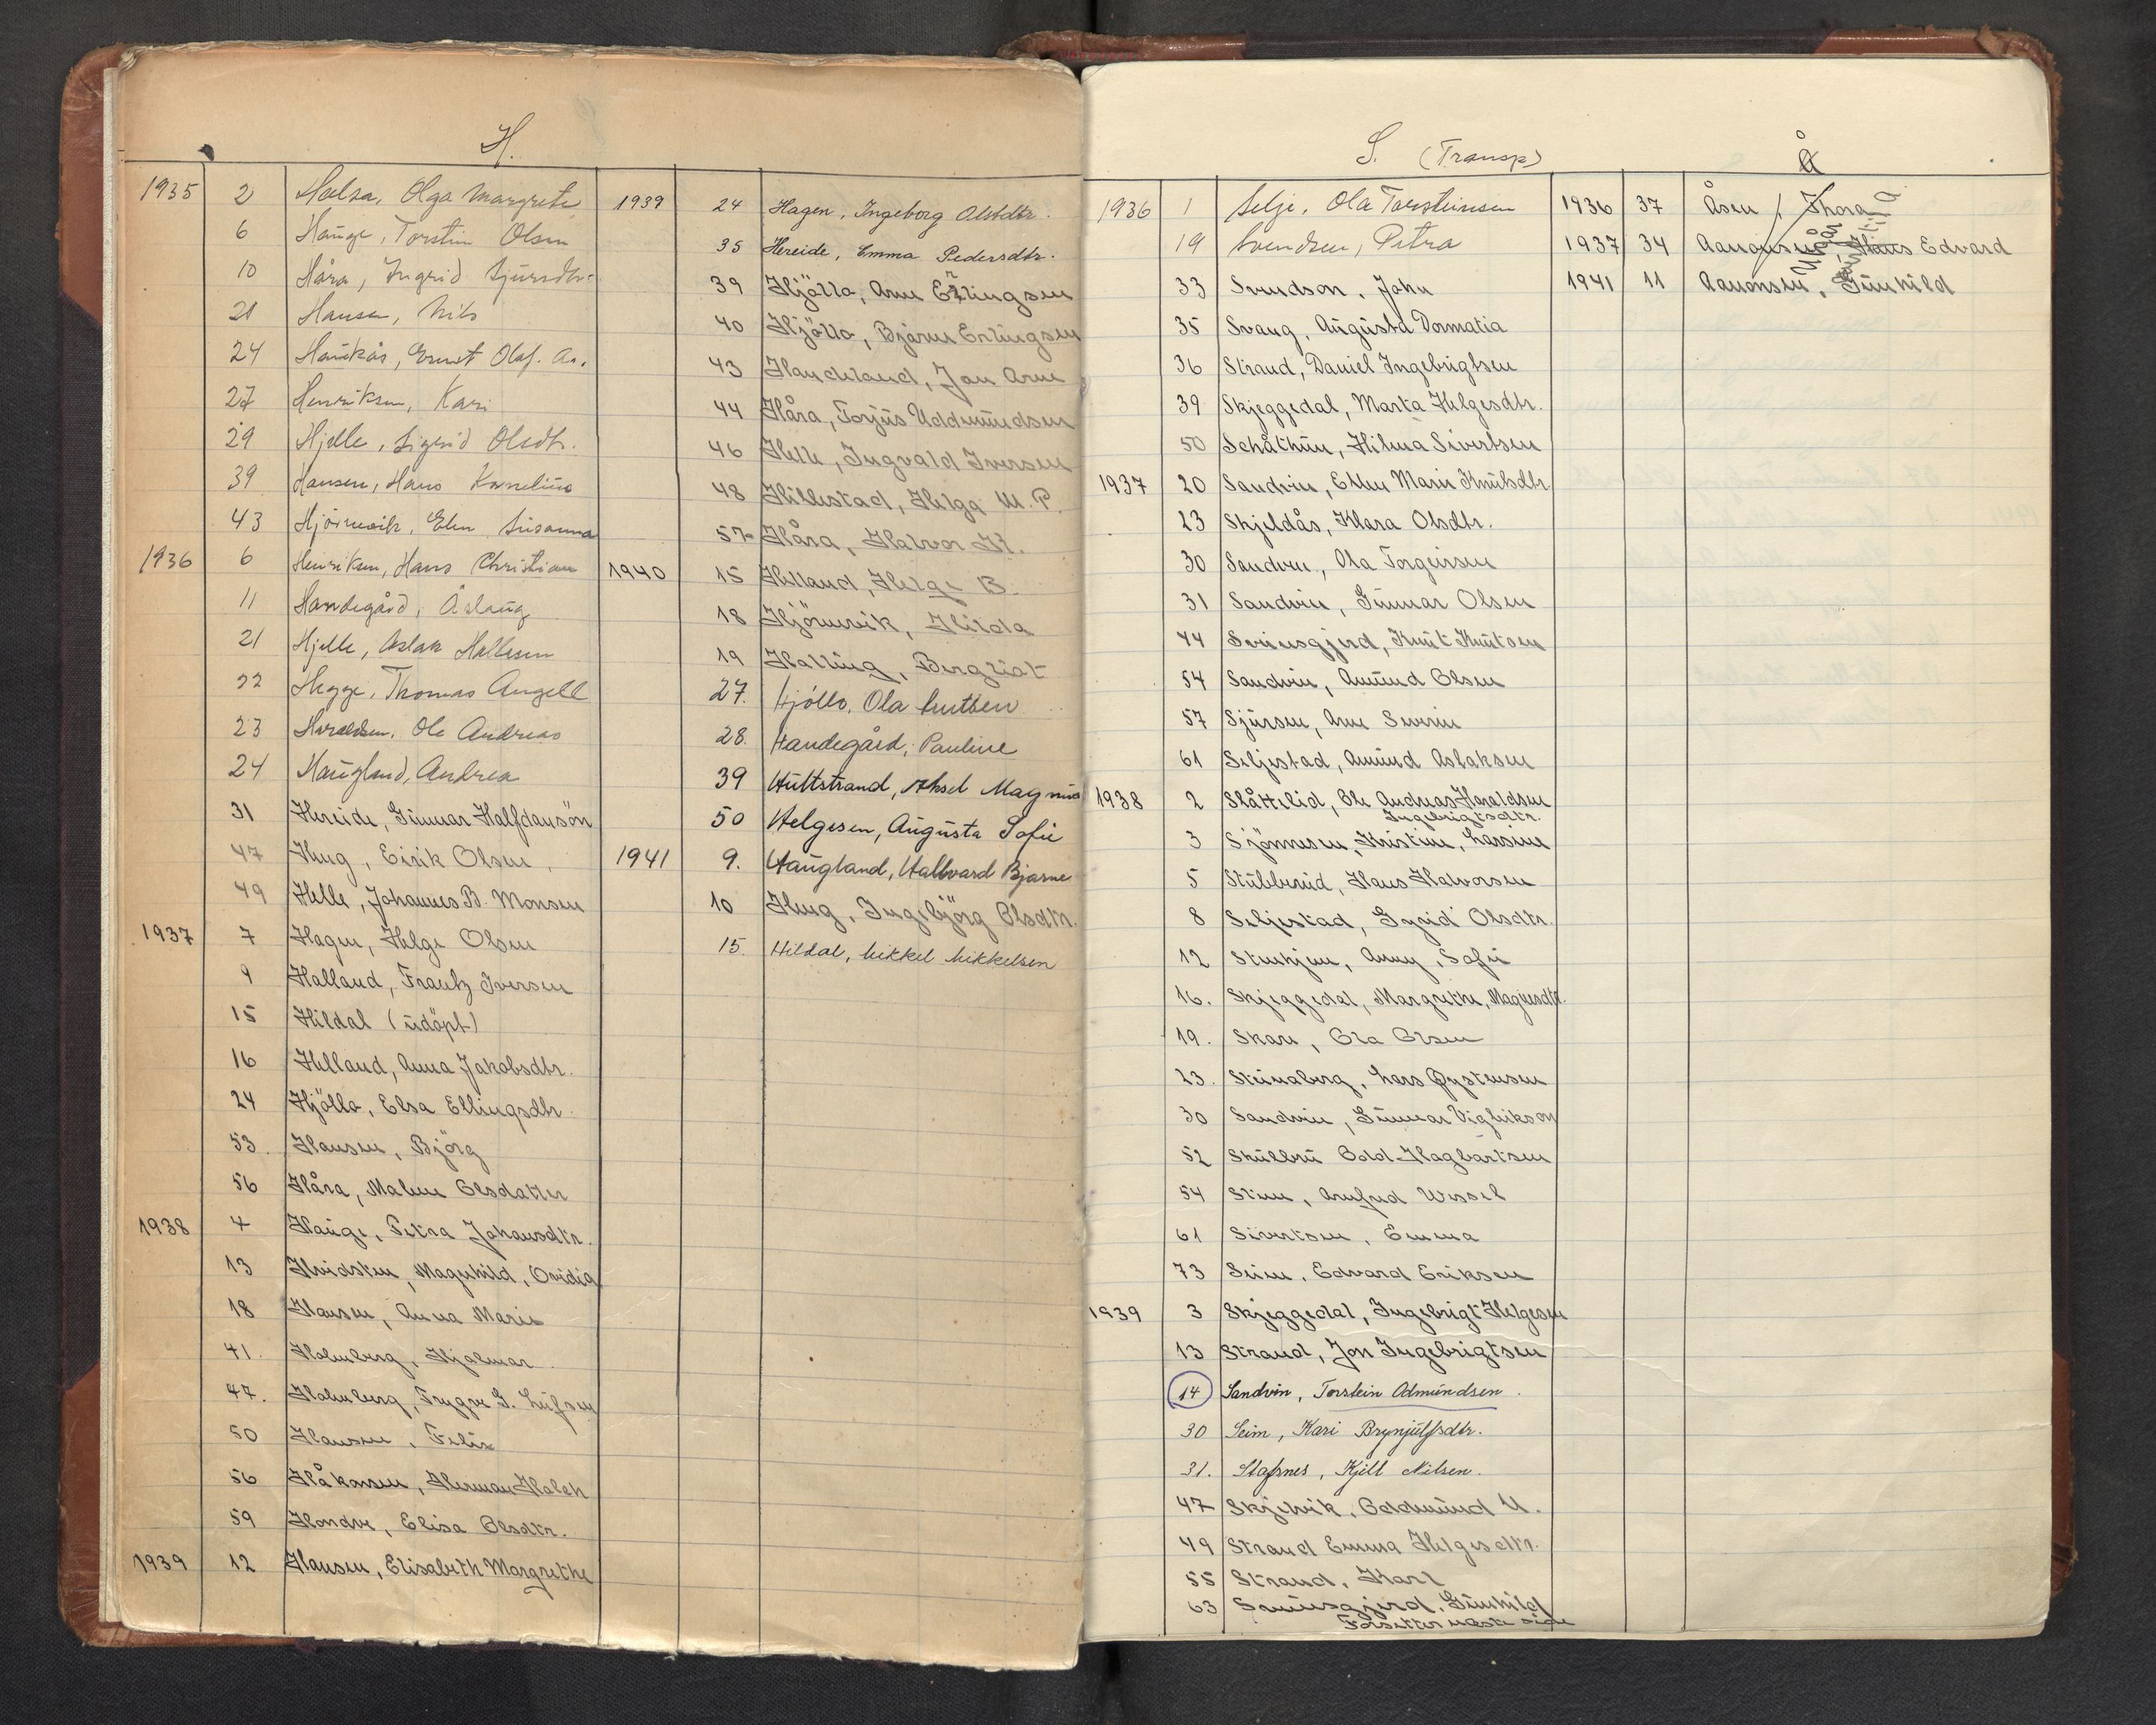 H.
1935 2 Halsa, Olga Margrete
6 Hauge, Torstein Olsen
10 Håra, Ingrid Sjursdtr.
21 Hansen, Nils
24 Haukås, Ernst Olaf. As.
27 Henriksen, Kari
29 Hjelle, Sigrid Olsdtr.
39 Hansen, Hans Kornelius
43 Hjörnevik, Elen Susanna
1936 6 Henriksen, Hans Christian
11 Handegård, Åslaug
21 Hjelle, Aslak Hallesen
22 Hegge, Thomas Angell
23 Haraldsen, Ole Andreas
24 Haugland, Andrea
31 Hereide, Gunnar Halfdansön
47 Haug, Eirik Olsen.
49 Helle, Johannes B. Monsen
1937 7 Hagen, Helge Olsen
9 Halland, Frantz Iversen
15 Hildal (udöpt)
16 Helland, Anna Jakobsdtr.
24 Hjöllo, Elsa Ellingsdtr.
53. Hansen, Björg
56 Håra, Malene Olsdatter
1938 4 Hauge, Petra Johansdtr.
13 Hvidsten, Magnhild, Ovidia
18 Hansen, Anna Marie
41. Holmberg, Hjalmar
47. Holmberg, Trygve G.
50 Hansen, Felix
56 Håkonsen, Herman
59 Hondve, Elisa Olsdtr.
1939 12 Hansen, Elisabeth Margrethe
1939 24 Hagen, Ingeborg Olsdtr.
35 Hereide, Emma Pedersdtr.
39 Hjöllo, Arne Erlingsen
40 Hjöllo, Bjarne Erlingsen
43 Haukland, Jon Arne
44 Håra, Torjus Oddmundsen
46 Helle, Ingvald Iversen
48 Hillestad, Helga M. P.
57 Håra, Halvor K.
1940 15 Helland, Helge B.
18 Hjörnevik, Hilda
19 Halling, Bergliot
27. Hjöllo, Ola Knutsen
28. Handegård, Pauline
39 Hultstrand, Aksel Magnus
50 Helgesen, Augusta Sofie
1941 9. Haugland, Hallvard Bjarne
10 Haug, Ingebjörg Olsdtr.
15. Hildal, Mikkel Mikkelsen
S. (Transp)
1936 1 Selje, Ola Torsteinsen
19 Svendsen, Petra
33 Svendson, John
35 Svang, Augusta Dormatia
36 Strand, Daniel Ingebrigtsen
39 Skjeggedal, Marta Helgesdtr.
50 Schåthun, Hilma Sivertsen
1937 20 Sandvin, Ellen Marie Knutsdtr.
23 Skjeldås, Klara Olsdtr.
30 Sandven, Ola Torgeirsen
31 Sandvin, Gunnar Olsen
44 Knut Knutsen
54 Sandvin, Amund Olsen
57 Sjursen, Arne Severin
61 Seljestad, Amund Aslaksen
1938 2 Slåttelid, Ole Andreas Haraldsen
Ingebrigtsdtr.
3 Sjönnesen, Kristine, Larsine
5 Stubberud, Hans Halvorsen
8 Seljestad, Gyrid Olsdtr.
12 Steinhjem, Anny, Sofie
16. Skjeggedal, Margrethe, Magnesdtr.
19. Skare, Ola Olsen
23. Steinaberg, Lars Øystensen
30 Sandvin, Gunnar Vigleikson
52 Skulbru Odd Hagbartsen
54 Steen, Arnfred Wessel
61 Sivertsen, Emma
73 Seim, Edvard Eriksen
1939 3 Skjeggedal, Ingebrigt Helgesen
13 Strand, Jon Ingebrigtsen
14 Sandvin, Torstein Odmundsen.
30 Seim, Kari Brynjulfsdtr.
31. Stafsnes, Kjell Nilsen.
47 Skjelvik, Oddmund M.
49 Strand Emma Helgesdtr.
55 Strand, Karl
63 Gunhild
Forsetter neste side
Å
1936 37 Åsen, Thora
1937 34 Aanonsen, Hans Edvard
1941 11 Aanonsen, Gunhild